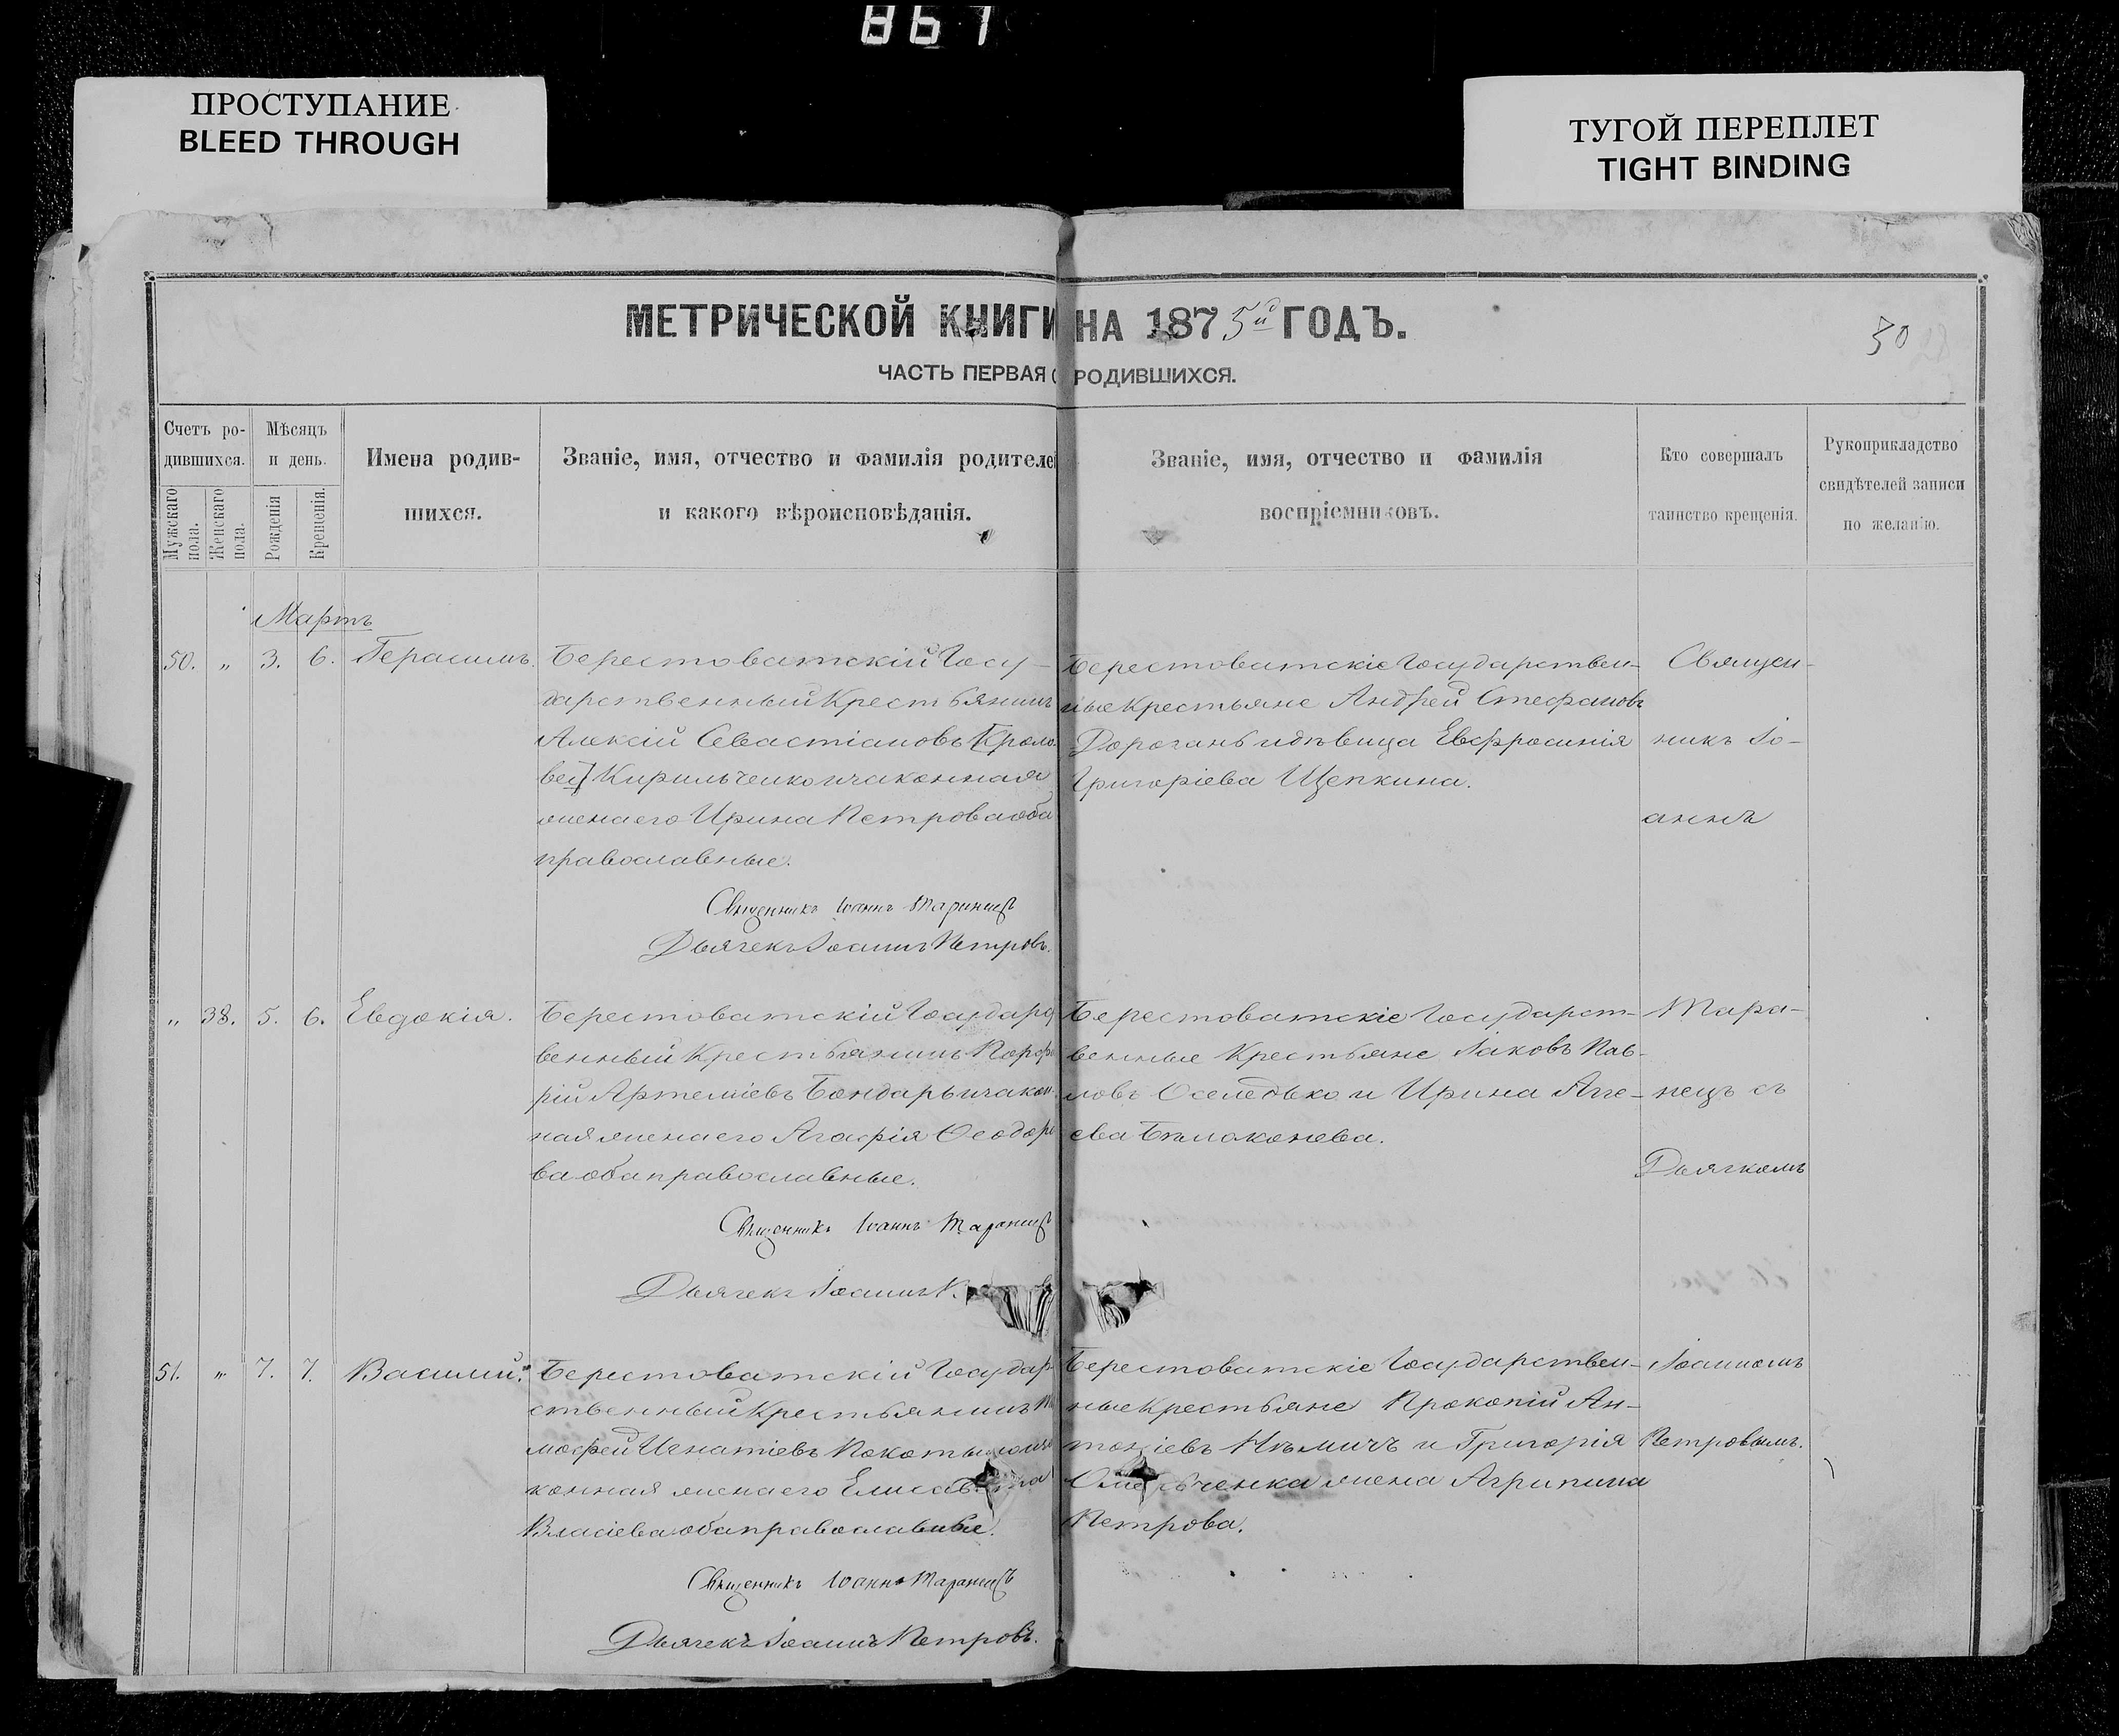 867
ПРОСТУПАНИЕ
BLEED THROUGH
ТУГОЙ ПЕРЕПЛЕТ
TIGHT BINDING
МЕТРИЧЕСКОЙ КНИГИ НА 1875й ГОДЪ.
30
ЧАСТЬ ПЕРВАЯ О РОДИВШИХСЯ.
Счетъ ро-
дившихся.
Мужскаго пола.
Женскаго пола.
Мѣсяцъ
и день.
Рожденія
Крещенія.
Имена родив-
шихся.
Званіе, имя, отчество и фамилія родителе
и какого вѣроисповѣданія.
Званіе, имя, отчество и фамилія
воспріемниковъ.
Кто совершалъ
таинство крещенія.
Рукоприкладство
свидѣтелей записи
по желанію.
Мартъ
50. „ 3. 6. Герасимъ.
Берестоватскій Госу-
дарственный Крестьянинъ
Алексій Севастіановъ [Кроло
вец] Кирильченко и законная
жена его Ирина Петрова оба
православные.
Священникъ Іоаннъ Таранецъ
Дьячекъ Іоаннъ Петровъ.
Берестоватскіе Государствен-
ные Крестьяне Андрей Стефановъ
Дорогань и дѣвица Евфросинія
Григоріева Щепкина.
Священ-
никъ Іо-
аннъ
„ 38. 5. 6. Евдокія.
Берестоватскій Государс
венный Крестьянинъ Порфи
рій Артеміевъ Бондарь и закон
ная жена его Агафія Ѳеодоро
ва оба православные.
Священникъ Іоаннъ Таранецъ
Дьячекъ Іоаннъ П
Берестоватскіе Государст-
венные Крестьяне Іаковъ Пав-
ловъ Оселедько и Ирина Агге-
ева Бѣлоконева.
Тара-
нецъ съ
Дьячкомъ
51. „ 7. 7. Василій.
Берестоватскій Государ
ственный Крестьянинъ Ти
мофей Игнатіевъ Покотыло и за
конная жена его Елисавета
Власіева оба православные.
Священникъ Іоаннъ Таранецъ
Дьячекъ Іоаннъ Петровъ.
Берестоватскіе Государствен-
ные Крестьяне Прокопій Ан-
тоніевъ Нѣмичъ и Григорія
Омельченка жена Агрипина
Петрова.
Іоанномъ
Петровымъ.